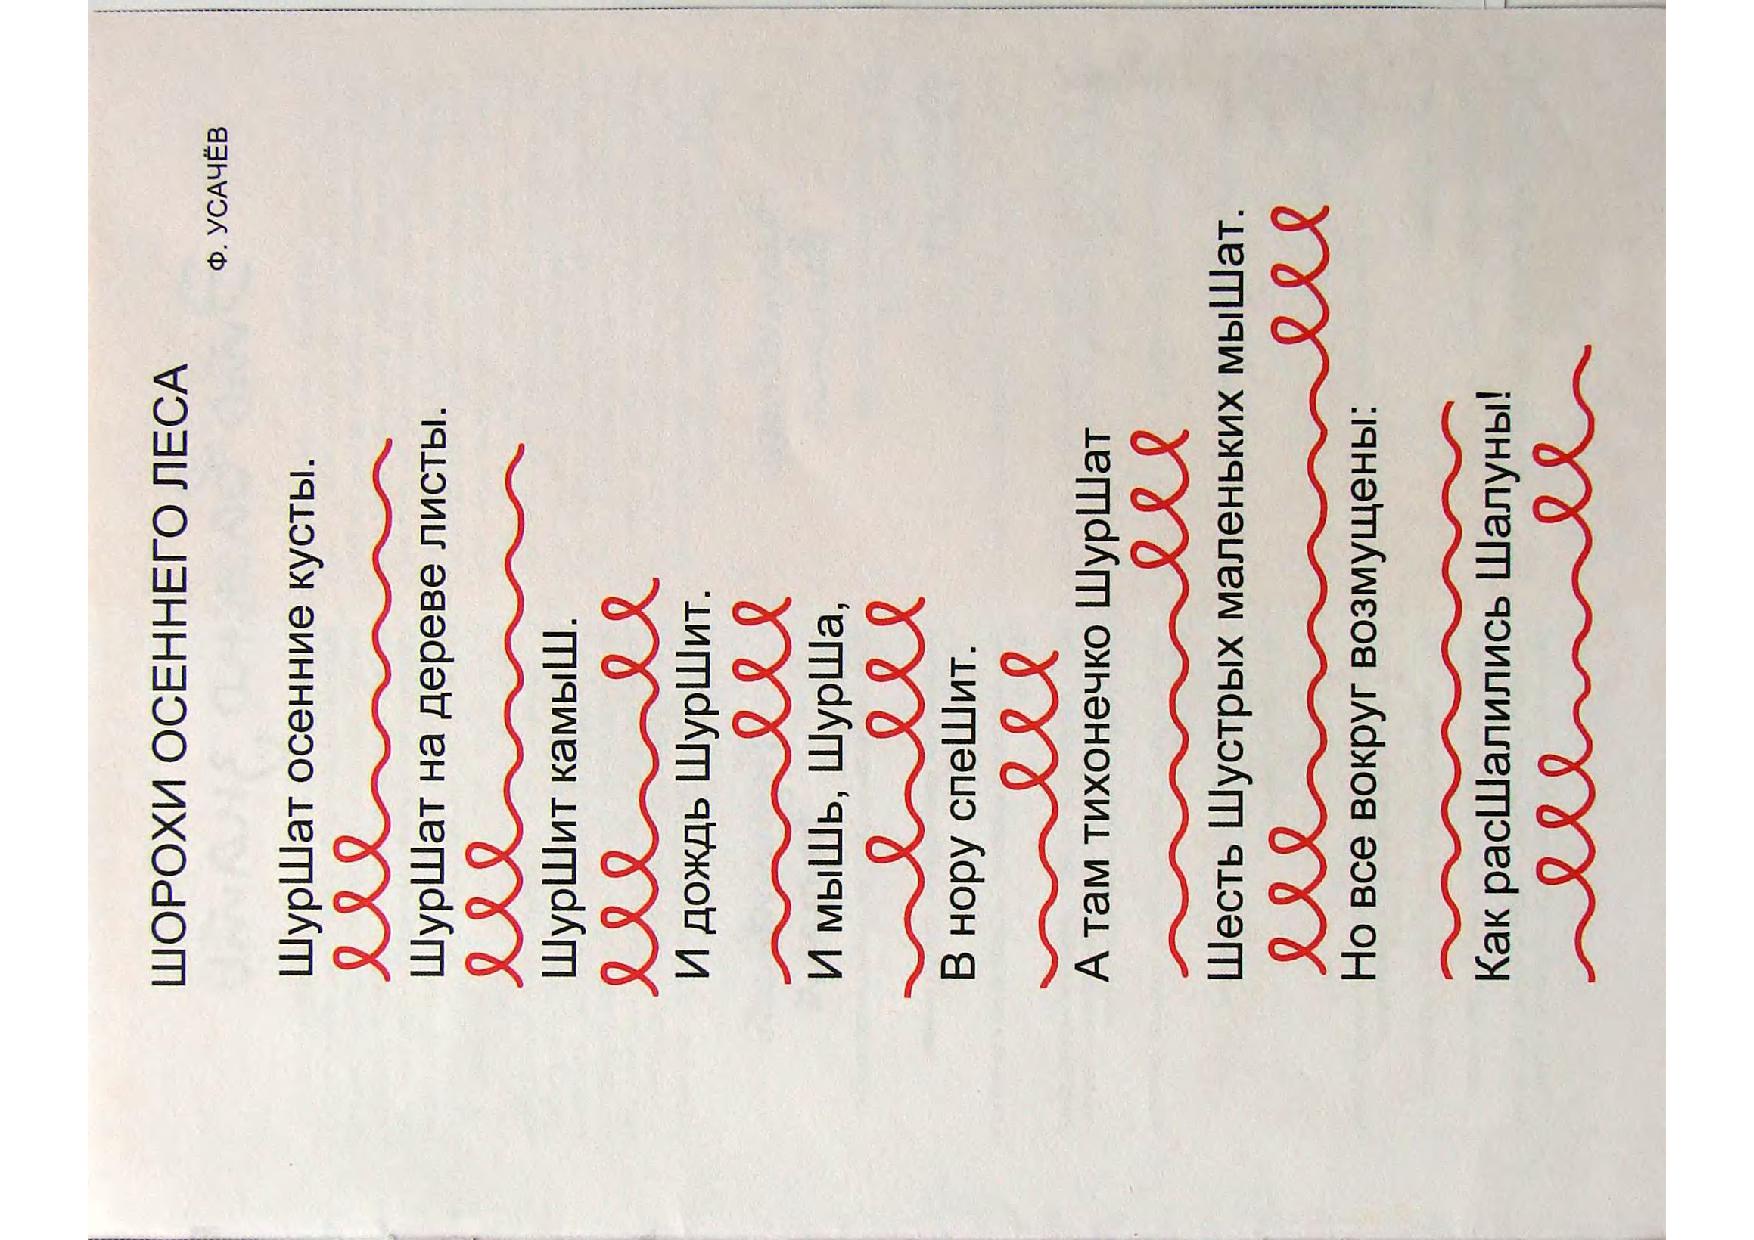 ШОРОХИ ОСЕННЕГО ЛЕСА
Ф. УСАЧЁВ
ШурШат осенние кусты.
ШурШат на дереве листы.
ШурШит камыШ.
И дождь ШурШит.
И мыШь, ШурШа,
В нору спеШит.
А там тихонечко ШурШат
Шесть Шустрых маленьких мыШат.
Но все вокруг возмущены:
Как расШалились Шалуны!